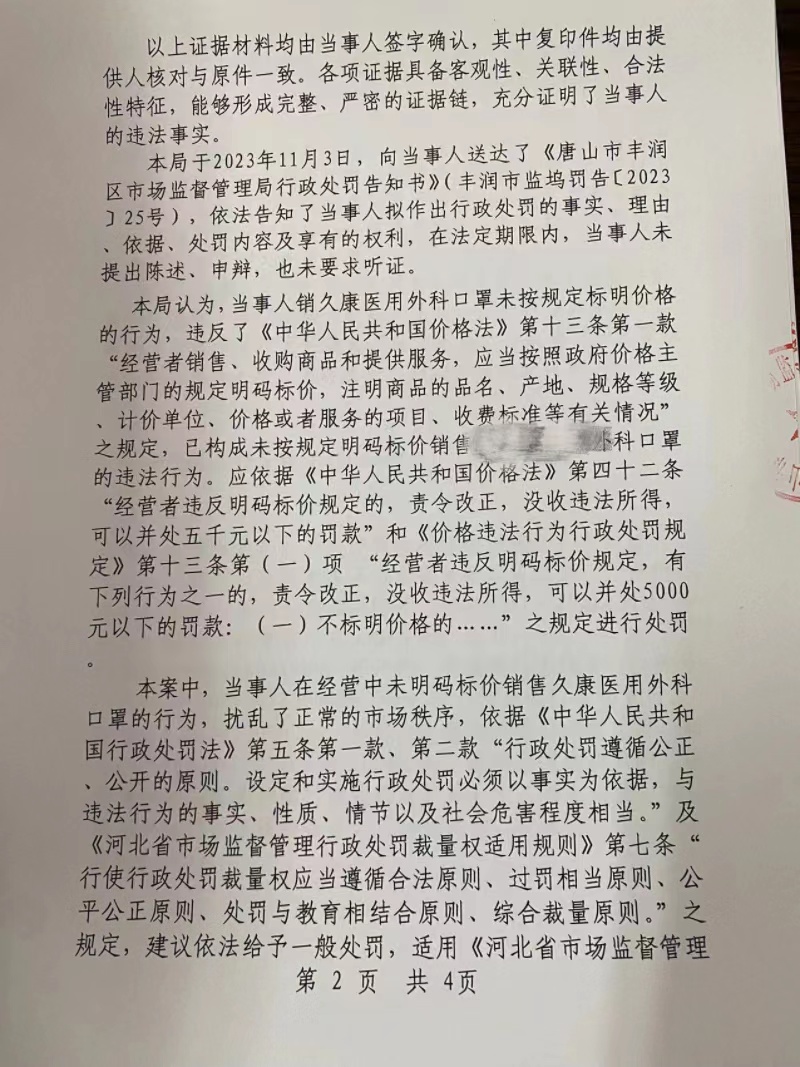 以上证据材料均由当事人签字确认，其中复印件均由提
供人核对与原件一致。各项证据具备客观性、关联性、合法
性特征，能够形成完整、严密的证据链，充分证明了当事人
的违法事实。
本局于2023年11月3日，向当事人送达了《唐山市丰润
区市场监督管理局行政处罚告知书》（丰润市监坞罚告〔2023
〕25号），依法告知了当事人拟作出行政处罚的事实、理由
、依据、处罚内容及享有的权利，在法定期限内，当事人未
提出陈述、申辩，也未要求听证。
本局认为，当事人销久康医用外科口罩未按规定标明价格
的行为，违反了《中华人民共和国价格法》第十三条第一款
“经营者销售、收购商品和提供服务，应当按照政府价格主
管部门的规定明码标价，注明商品的品名、产地、规格等级
、计价单位、价格或者服务的项目、收费标准等有关情况”
之规定，已构成未按规定明码标价销售外科口罩
的违法行为。应依据《中华人民共和国价格法》第四十二条
“经营者违反明码标价规定的，责令改正，没收违法所得，
可以并处五千元以下的罚款”和《价格违法行为行政处罚规
定》第十三条第（一）项 “经营者违反明码标价规定，有
下列行为之一的，责令改正，没收违法所得，可以并处5000
元以下的罚款：（一）不标明价格的……”之规定进行处罚
。
本案中，当事人在经营中未明码标价销售久康医用外科
口罩的行为，扰乱了正常的市场秩序，依据《中华人民共和
国行政处罚法》第五条第一款、第二款“行政处罚遵循公正
、公开的原则。设定和实施行政处罚必须以事实为依据，与
违法行为的事实、性质、情节以及社会危害程度相当。”及
《河北省市场监督管理行政处罚裁量权适用规则》第七条“
行使行政处罚裁量权应当遵循合法原则、过罚相当原则、公
平公正原则、处罚与教育相结合原则、综合裁量原则。”之
规定，建议依法给予一般处罚，适用《河北省市场监督管理
第 2 页 共 4页